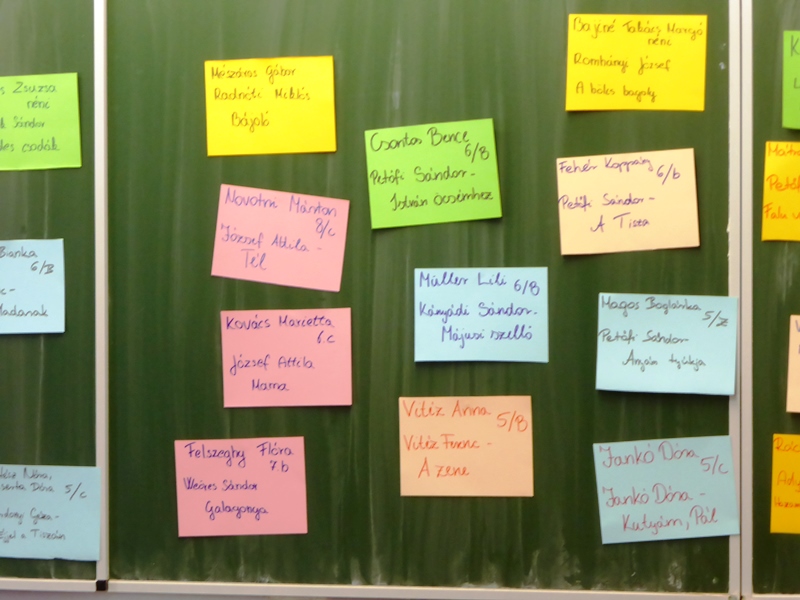 Zsuzsa
néni
Sándor
csodák
Bianka
6/B
5/c
Mészáros Gábor
Radnóti Miklós
Bájoló
Novotni Márton
8/c
József Attila -
Tél
Kovács Marcetta
6.c
József Attila
Mama
Felszeghy Flóra
7.b
Weöres Sándor
Galagonya
Csontos Bence
6/B
Petőfi Sándor -
István öcsémhez
Müller Lili 6/B
Kányádi Sándor -
Májusi szellő
Vitéz Anna 5/B
Vitéz Ferenc -
A zene
Bajzné Takács Margó
néni
Romhányi József
A bölcs bagoly
Fehér Koppány 6/b
Petőfi Sándor -
A Tisza
Magos Boglárka 5/z
Petőfi Sándor
Anyám tyúkja
Jankó Dóra 5/c
Jankó Dóra -
Kutyám, Pál
Falu